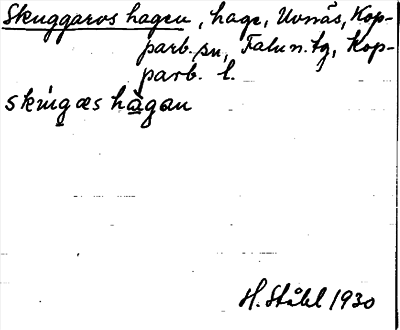 Skuggarvs hagen, hage, Uvnäs, Kop-
parb. sn, Falu n. tg, Kop-
parb. l.
hàgan
H. Ståhl 1930